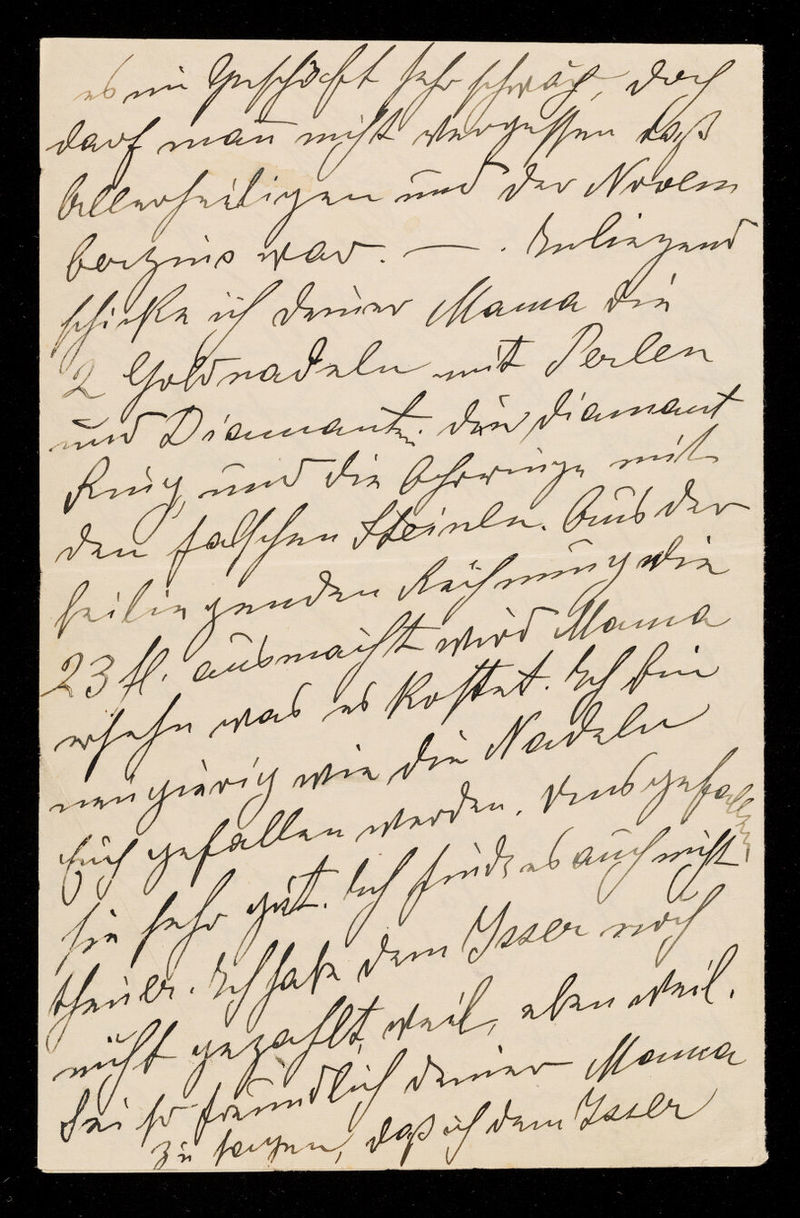 es im Geschäft sehr schwach, doch
darf man nicht vergessen daß
Allerheiligen und der Novem
berzins war. — . Inliegend
schicke ich deiner Mama die
2 Goldnadeln mit Perlen
und Diamanten. den diamant
Ring, und die Ohrringe mit
den falschen Steineln. Aus der
beiliegenden Rechnung die
23 fl. ausmacht wird Mama
ersehn was es kostet. Ich bin
neugierig wie die Nadeln
Euch gefallen werden. Uns gefallen
sie sehr gut. Ich finde es auch nicht
theuer. Ich habe dem Isser noch
nicht gezahlt, weil, eben weil.
Sei so freundlich deiner Mama
zu sagen, daß ich dem Isser